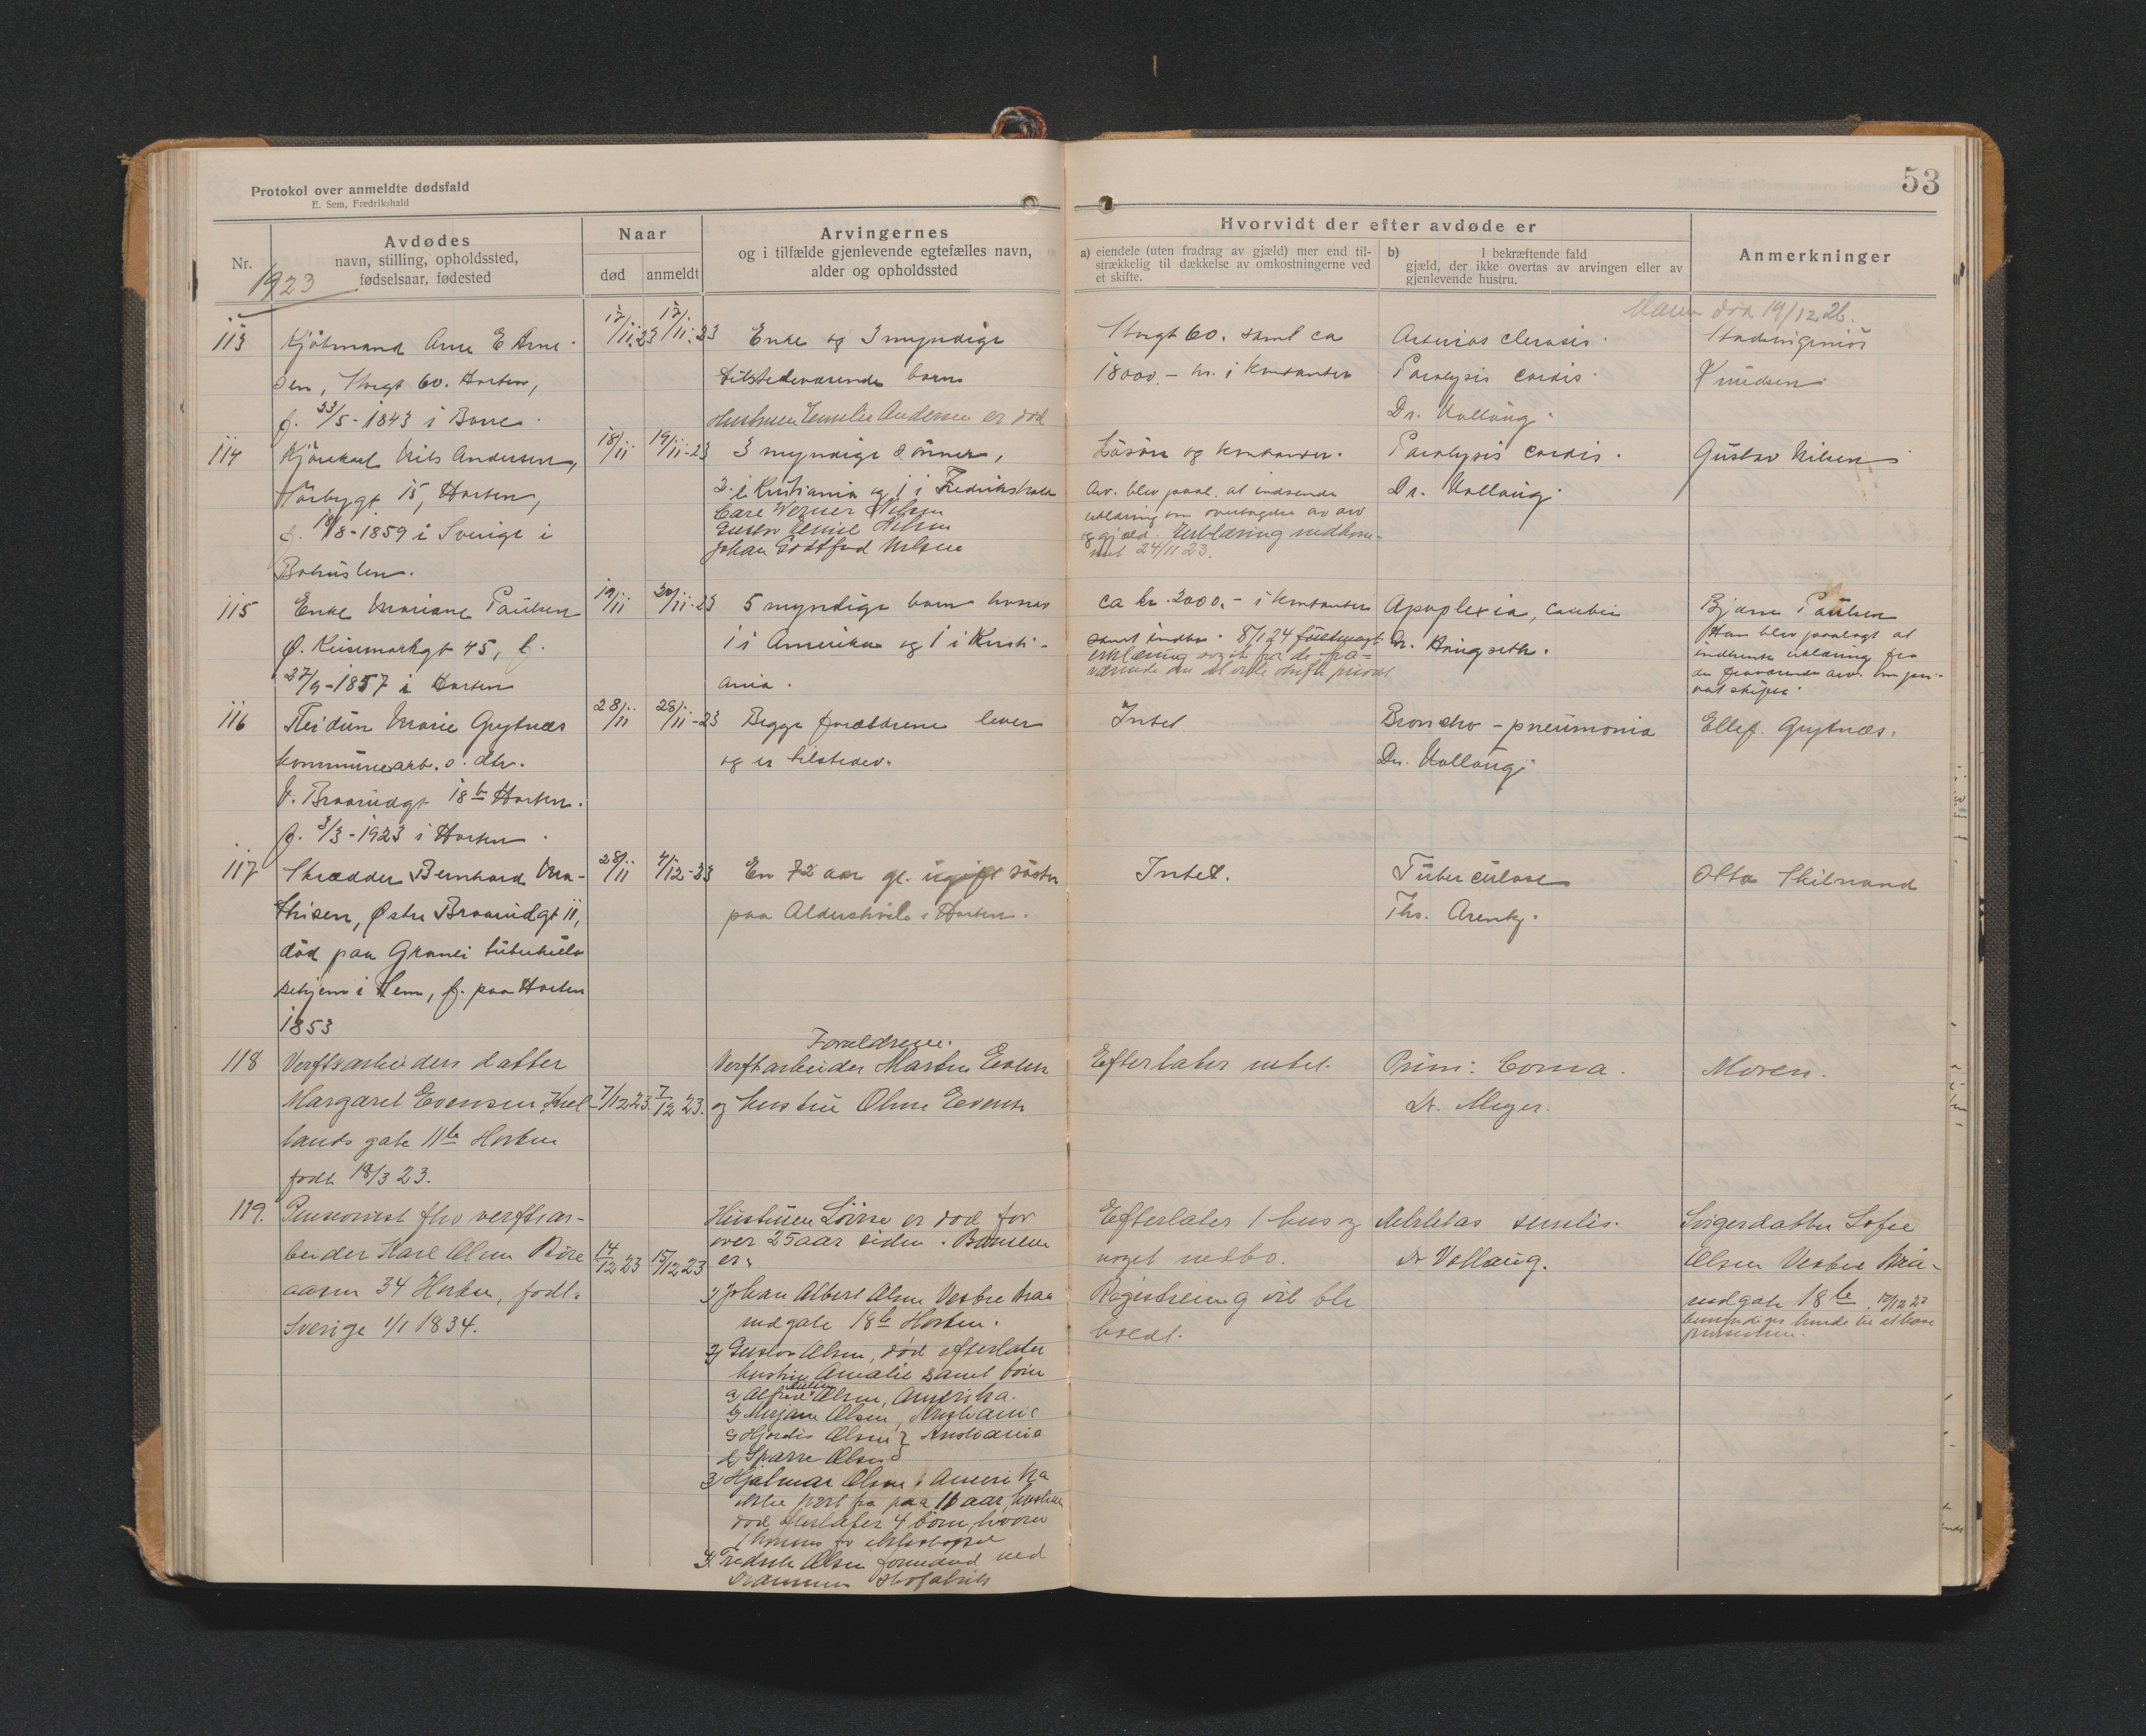 Protokol over anmeldte dødsfald
E. Sem, Fredrikshald
53
Nr.
1923
Avdødes
navn, stilling, opholdssted,
fødselsaar, fødested
Naar
død
anmeldt
Arvingernes
og i tilfælde gjenlevende egtefælles navn,
alder og opholdssted
Hvorvidt der efter avdøde er
a) eiendele (uten fradrag av gjæld) mer end til-
strækkelig til dækkelse av omkostningerne ved
et skifte.
b) I bekræftende fald
gjæld, der ikke overtas av arvingen eller av
gjenlevende hustru.
Anmerkninger
113
Kjøbmand Arne E Arne-
sen, Storgt 60. Horten,
f. 23/5-1843 i Borre.
17/11.23
17/11-23
Enke og 3 myndige
tilstedeværende barn
Hustruen Emilie Andersen er død
Storgt 60. samt ca
18000.- kr. i kontanter
Arterios clerosis.
Paralysis cordis.
Dr. Vollaug.
død 19/12 26.
Stadsingeniør
Knudsen
114
Kjørekarl Nils Andersen,
15, Horten,
f. 18/8-1859 i Sverige i
Bohuslen.
18/11
19/11-23
3 myndige sönner,
2 i Kristiania og 1 i Fredrikshald
Carl Werner Nilsen
Gustav Nilsen
Johan Godtfred Nilsen
Lösøre og kontanter.
Arv. blev paal. at indsende
erklæring om overtagelse av arv
og gjæld. Erklæring indkom-
met 24/11 23.
Paralysis cordis.
Dr. Vollaug.
Gustav Nilsen
115
Enke Mariane Paulsen
Ø. Keisemarkgt 45, f.
27/9-1857 i Horten
19/11
20/11-23
5 myndige barn hvorav
1 i Amerika og 1 i Kristi-
ania.
ca kr. 2000.- i kontanter
samt indbo. 8/1 24
erklæring
Apoplexia, cerebri
Dr. Haugseth.
Bjarne Paulsen
Han blev paalagt at
indhente erklæring fra
de fraværende arv. om pri-
vat skifte.
116
Reidun Marie Grytnæs
kommunearb. s. dtr.
V. Braarudgt 18 b Horten.
f. 3/3-1923 i Horten.
28/11
28/11-23
Begge forældrene lever
og er tilstedev.
Intet
Broncho-pneumonia
Dr. Vollaug
Ellef. Grytnæs.
117
Skrædder Bernhard Ma-
thisen, Østre Braarudgt 11,
död paa Granli tuberkulo-
sehjem i Sem, f. paa Horten
1853
28/11
4/12-23
En 72 aar gl. ugift søster
paa Aldershvile i Horten.
Intet.
Tuberculose
Ths. Arentz.
Otto Skilnand
118
Verftsarbeiders datter
Margaret Evensen, Kiel-
lands gate 11 b Horten
født 18/3 23.
7/12 23.
7/12 23.
Forældrene.
Verftsarbeider Martin Evensen
og hustru Olme Evensen
Efterlater intet.
Coma.
Dr. Meyer.
Moren.
119.
Pensionist fhv verftsar-
beider Karl Olsen Røre
aasen 34 Horten, født i
Sverige 1/1 1834.
14/12 23
15/12 23
Hustruen er død for
over 25 aar siden. Barnene
er:
1) Johan Albert Olsen Vestre Braa
rudgate 18 b Horten.
2) Gustav Olsen, død efterlater
hustru Amalie samt barn
a) Alfred Olsen, Amerika.
b) Mirjam Olsen, Kristiania
c) Hjørdis Olsen } Kristiania
d) Sparre Olsen
3) Hjalmar Olsen i Amerika
ikke hørt fra paa 11 aar, hustru
død efterlater 4 barn, hvorav
4. Fredrik Olsen formand ved
Drammen skofabrik
Efterlater 1 hus og
noget indbo.
Registrering vil bli
holdt.
Debilitas senilis.
Dr Vollaug.
Svigerdatter Sofie
Olsen Vestre Braa-
rudgate 18 b. 15/12 23
bemyndiges hende til at hæve
pensionen.